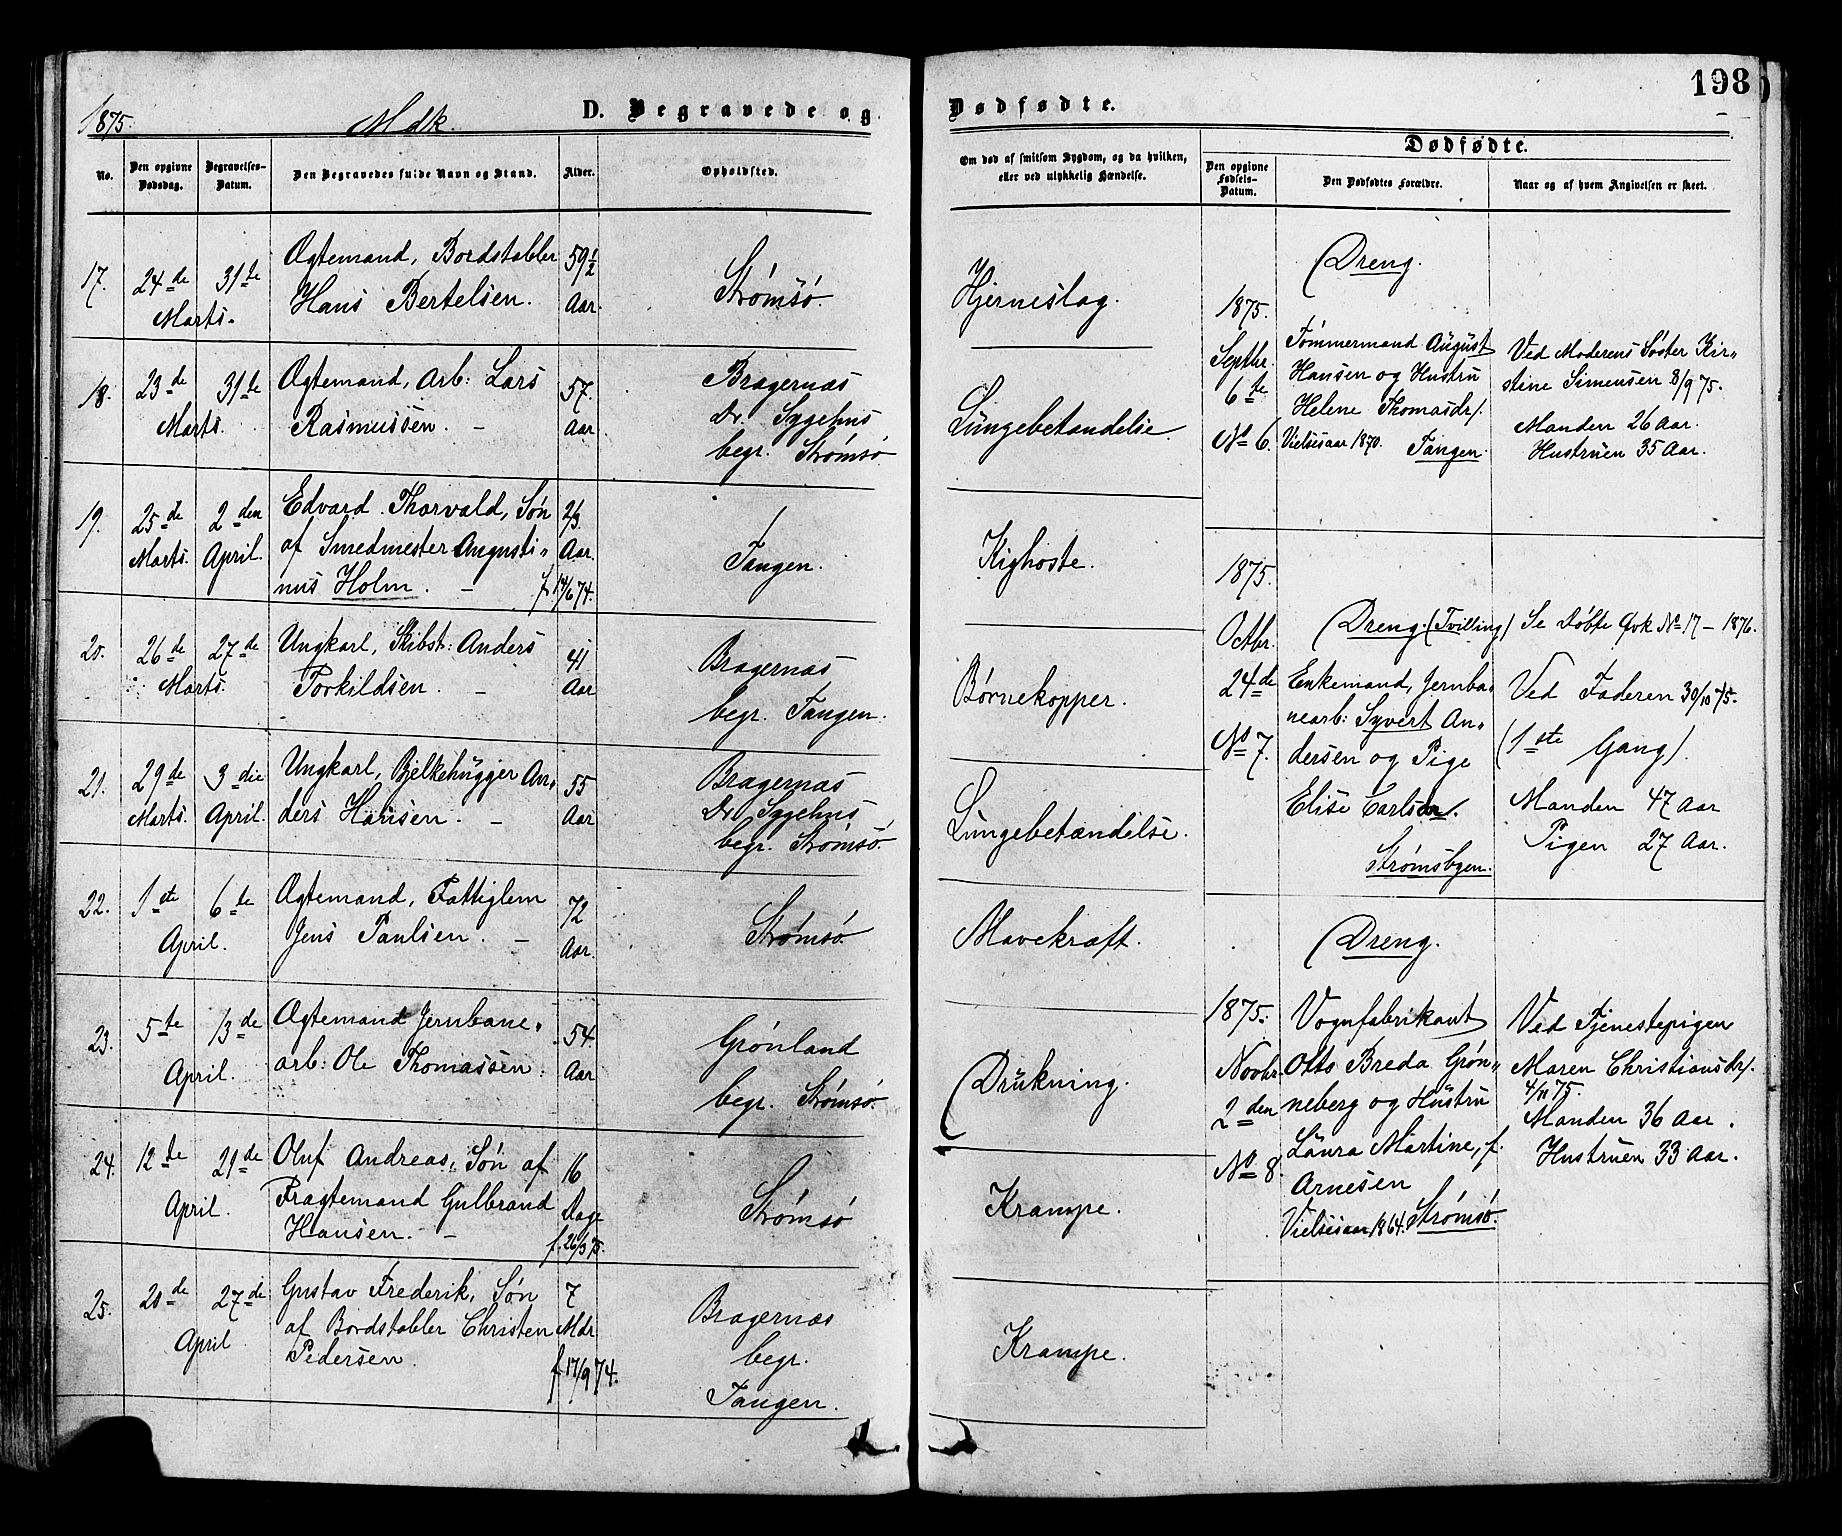 198
1875.
Mdk.
D. Begravede og
Dødfødte.
No.
Den opgivne Dødsdag.
Begravelses-Datum.
Den Begravedes fulde Navn og Stand.
Alder.
Opholdsted.
Om død af smitsom Sygdom, og da hvilken,
eller ved ulykkelig Hændelse.
Dødfødte.
Den opgivne Fødsels-Datum.
Den Dødfødtes Forældre.
Naar og af hvem Angivelsen er skeet.
17.
24de
31te
Marts.
Ægtemand, Bordstabler
Hans Bertelsen.
59½
Aar.
Strømsø.
Hjerneslag
18.
23de
31te
Marts.
Ægtemand, Arb: Lars
Rasmussen. -
57.
Aar
Bragernæs
Dr. Sygehus
begr. Strømsø
Lungebetændelse.
19.
25de
2den
Marts.
April.
Edvard Thorvald, Søn
af Smedmester Augusti-
nus Holm. -
2/3
Aar.
f. 14/6 74.
Tangen.
Kighoste.
20.
26de
27de
Marts.
Ungkarl, Skibst: Anders
Torkildsen. -
41
Aar
Bragernæs
begr. Tangen.
Børnekopper.
21.
29de
3die
Marts.
April.
Ungkarl, Bjelkehugger An-
ders Hansen. -
55
Aar
Bragernæs
Dr. Sygehus
begr. Strømsø.
Lungebetændelse.
22.
1ste
6te
April.
Ægtemand, Fattiglem
Jens Paulsen. -
72
Aar.
Strømsø.
Mavekræft.
23.
5te
13de
April.
Ægtemand Jernbane-
arb: Ole Thomassen.
54.
Aar
Grønland
begr. Strømsø.
Drukning.
24.
12te
21de
April.
Oluf Andreas, Søn af
Fragtemand Gulbrand
Hansen. -
16
Dage
f. 26/3 75.
Strømsø
Krampe.
25.
20de
27de
April
Gustav Frederik, Søn
af Bordstabler Christen
Pedersen.
7
Mdr
f 17/9 74.
Bragernæs
begr.
Tangen.
Krampe.
Dreng.
1875.
Septbr.
6te
No 6.
Tømmermand August
Hansen og Hustru
Helene Thomasdr/.
Vielsesaar 1870. Tangen.
Ved Moderens Søster Kir-
stine Simensen 8/9 75.
Manden 26 Aar.
Hustruen 35 Aar.
1875.
Octbr.
24de
No 7.
Dreng. (Tvilling)
Enkemand, Jernba-
nearb: Syvert An-
dersen og Pige
Elise Carlsdr/.
Strømsbyen.
Se Døbte Qvk No 17 - 1876.
Ved Faderen 30/10 75.
(1ste Gang).
Manden 47 Aar
Pigen 27 Aar.
Dreng.
1875.
Novbr
2den
No 8.
Vognfabrikant
Otto Breda Grøn-
neberg og Hustru
Laura Martine, f.
Arnesen
Vielsesaar 1864. Strømsø.
Ved Tjenestepigen
Maren Christiansdr/.
4/11 75.
Manden 36 Aar.
Hustruen 33 Aar.